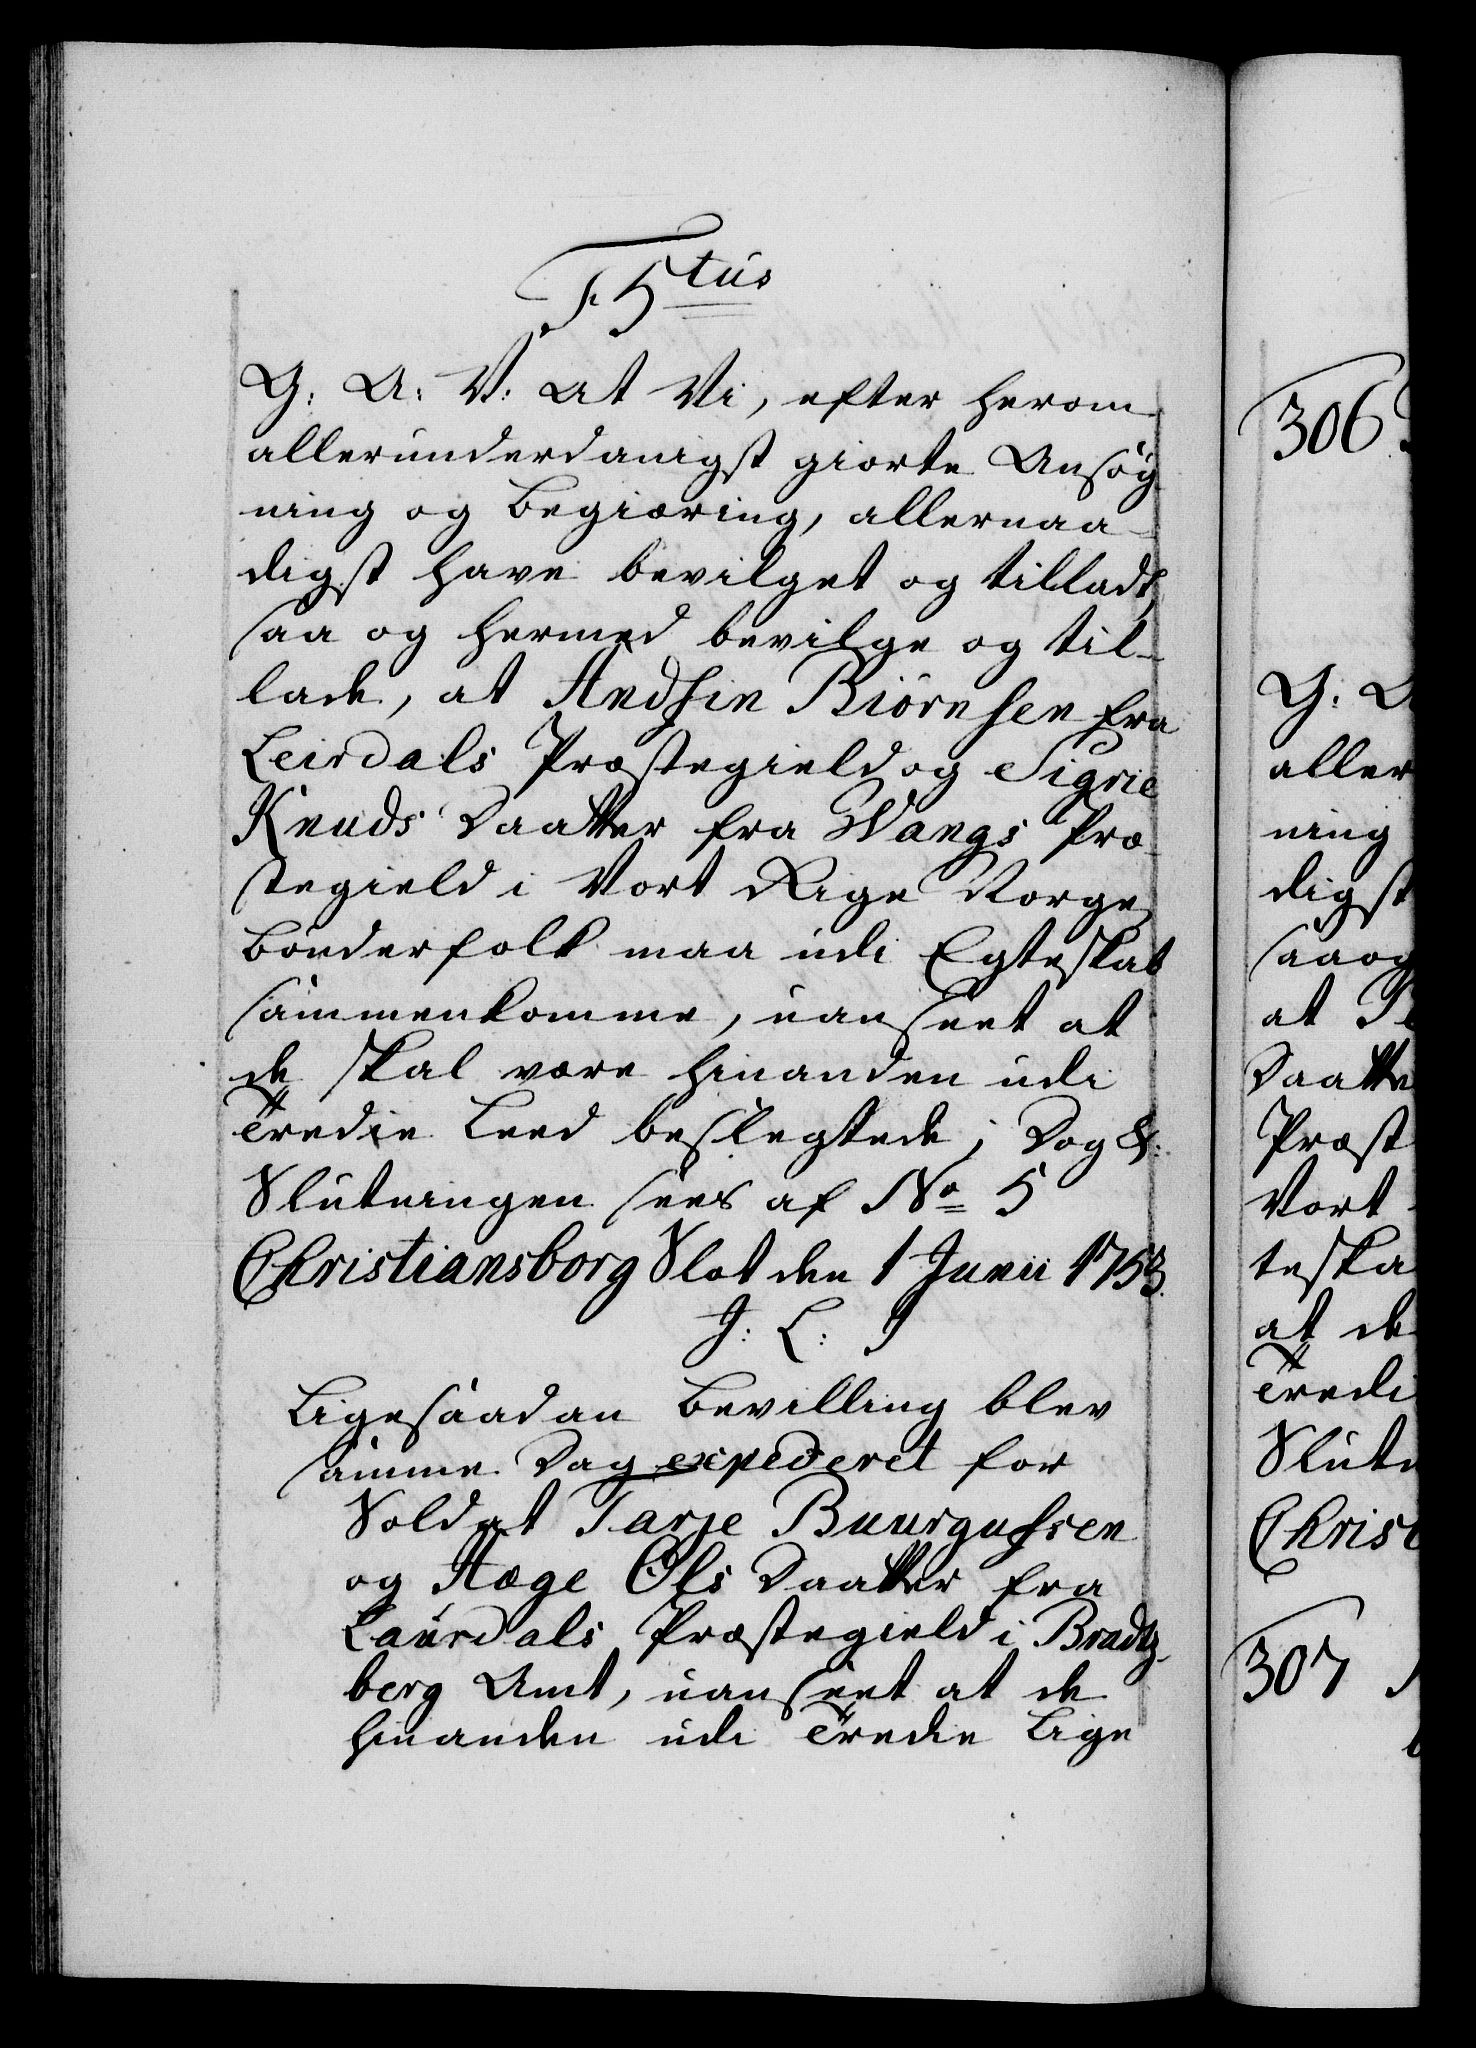 F. 5tus
G: A: V: At Vi, efter herom
allerunderdanigst giorte Ansøg
ning og Begiæring, allernaa-
digst have bevilget og tilladt,
saa og hermed bevilge og til-
lade, at Andsin Biörnsen fra
Leirdals Præstegield og Sigrie
Knuds Daatter fra Wangs Præ-
stegield i Vort Rige Norge,
Bönderfolk maa udi Egteskab
sammenkomme, uanseet at
de skal være hinanden udi
Tredie Leed beslegtede; Dog &:
Slutningen sees af No 5
Christiansborg Slot den 1 Junii 1753.
J: L: T
Ligesaadan Bevilling blev
samme Dag expederet for
Soldat Tarje Buurgufsen
og Hæge Ols Daatter fra
Laurdals Præstegield i Bradtz-
berg Amt, uanseet at de
hinanden udi Tredie Lige
306
G: A
aller
ning
digst
saa og
at
Daatte
Præst
Vort
teska
at de
Tredi
Slutn
Christ
307